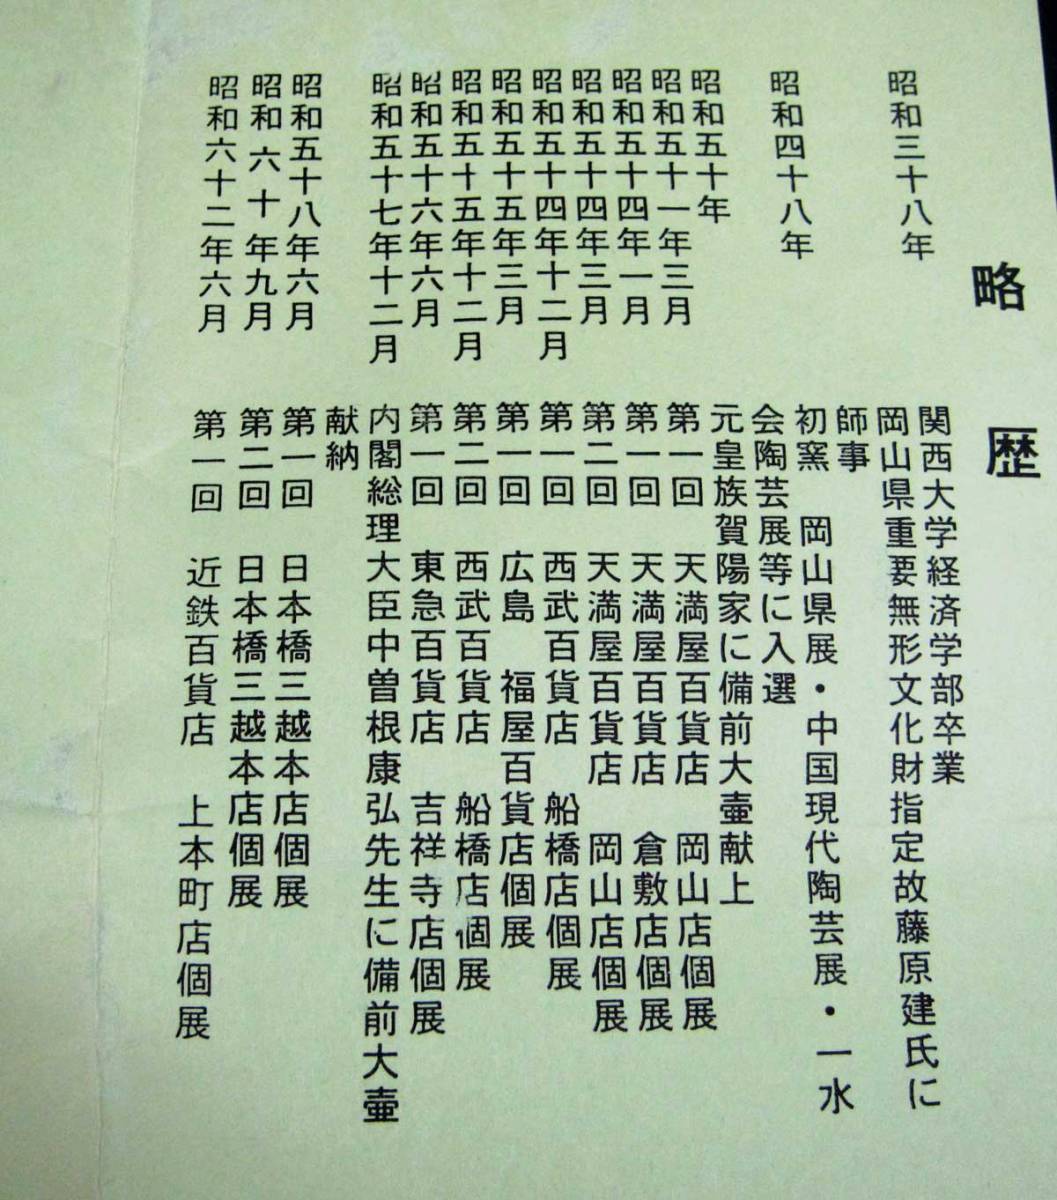 略歴
昭和三十八年 関西大学経済学部卒業
岡山県重要無形文化財指定故藤原建氏に
師事
昭和四十八年 初窯 岡山県展・中国現代陶芸展・一水
会陶芸展等に入選
昭和五十年 元皇族賀陽家に備前大壷献上
昭和五十一年三月 第一回 天満屋百貨店 岡山店個展
昭和五十四年一月 第一回 天満屋百貨店 倉敷店個展
昭和五十四年三月 第二回 天満屋百貨店 岡山店個展
昭和五十四年十二月 第一回 西武百貨店 船橋店個展
昭和五十五年三月 第一回 広島 福屋百貨店個展
昭和五十五年十二月 第二回 西武百貨店 船橋店個展
昭和五十六年六月 第一回 東急百貨店 吉祥寺店個展
昭和五十七年十二月 内閣総理大臣中曽根康弘先生に備前大壷
献納
昭和五十八年六月 第一回 日本橋三越本店個展
昭和六十年九月 第二回 日本橋三越本店個展
昭和六十二年六月 第一回 近鉄百貨店 上本町店個展